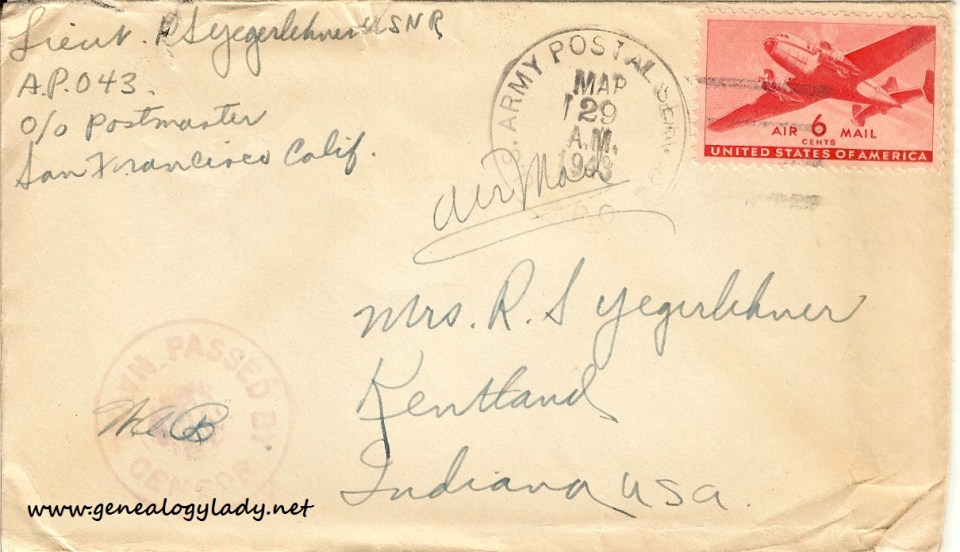 Lieut. R S Yegerlehner USNR
A.P.O 43.
c/o Postmaster
San Francisco Calif.
U.S. ARMY POSTAL SERVICE
MAR
29
A.M.
1943
AIR 6 MAIL
CENTS
UNITED STATES OF AMERICA
Air Mail
Mrs. R. S Yegerlehner
Kentland
Indiana USA.
PASSED BY
NAVAL CENSOR
www.genealogylady.net